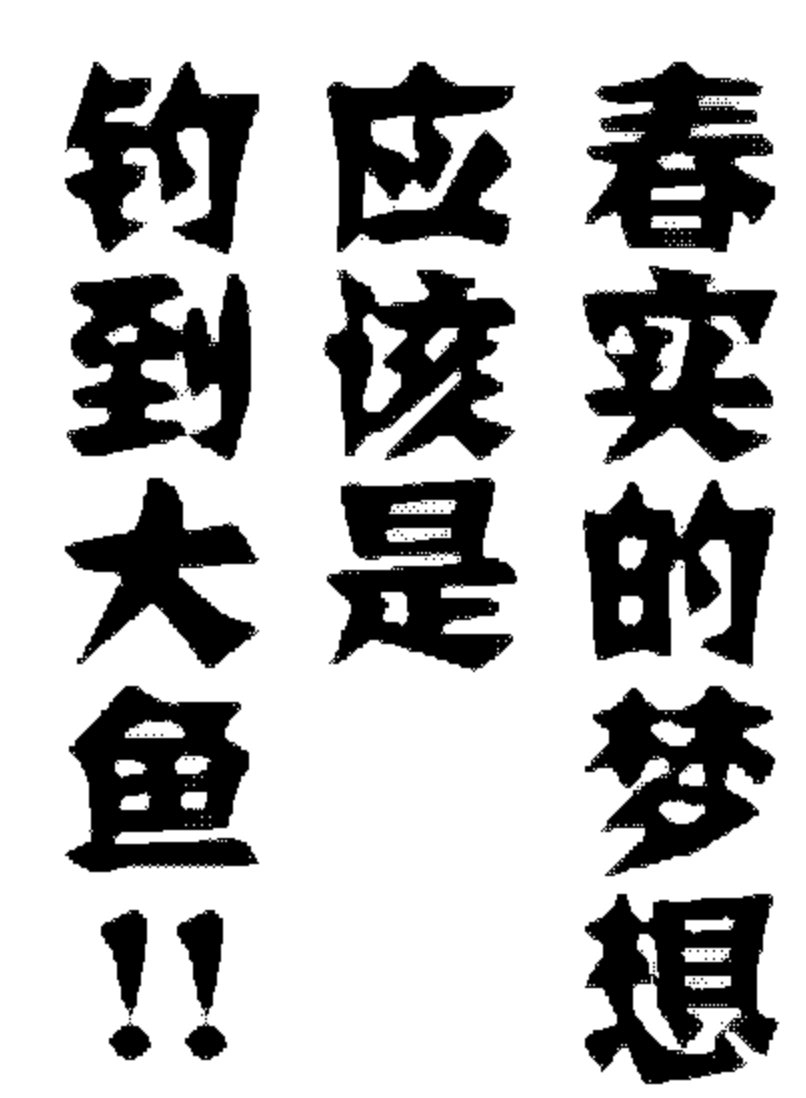 春实的梦想
应该是
钓到大鱼!!